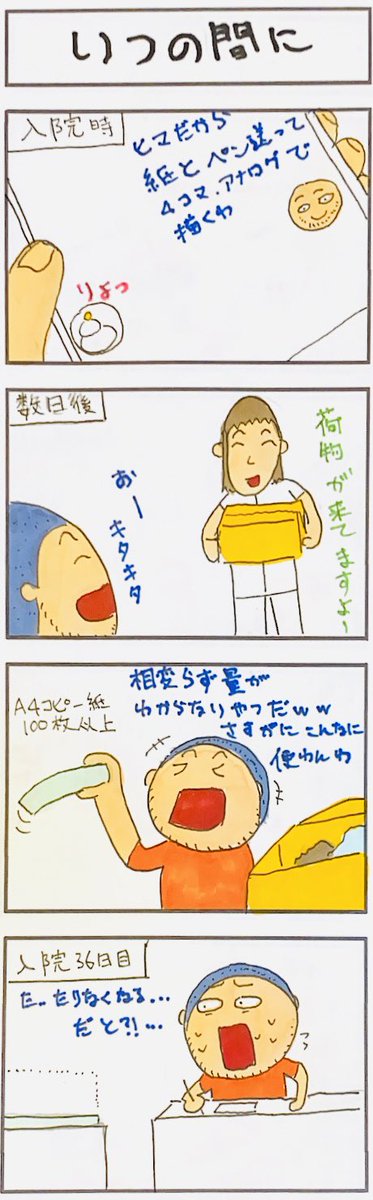 いつの間に
入院時
ヒマだから
紙とペン送って
4コマ、アナログで
描くわ
りょっ
数日後
荷物が来てますよー
おー
キタキタ
A4コピー紙
100枚以上
相変らず量が
わからないやつだww
さすがにこんなに
使わんわ
入院36日目
た、、たりなくなる…
だと?!…